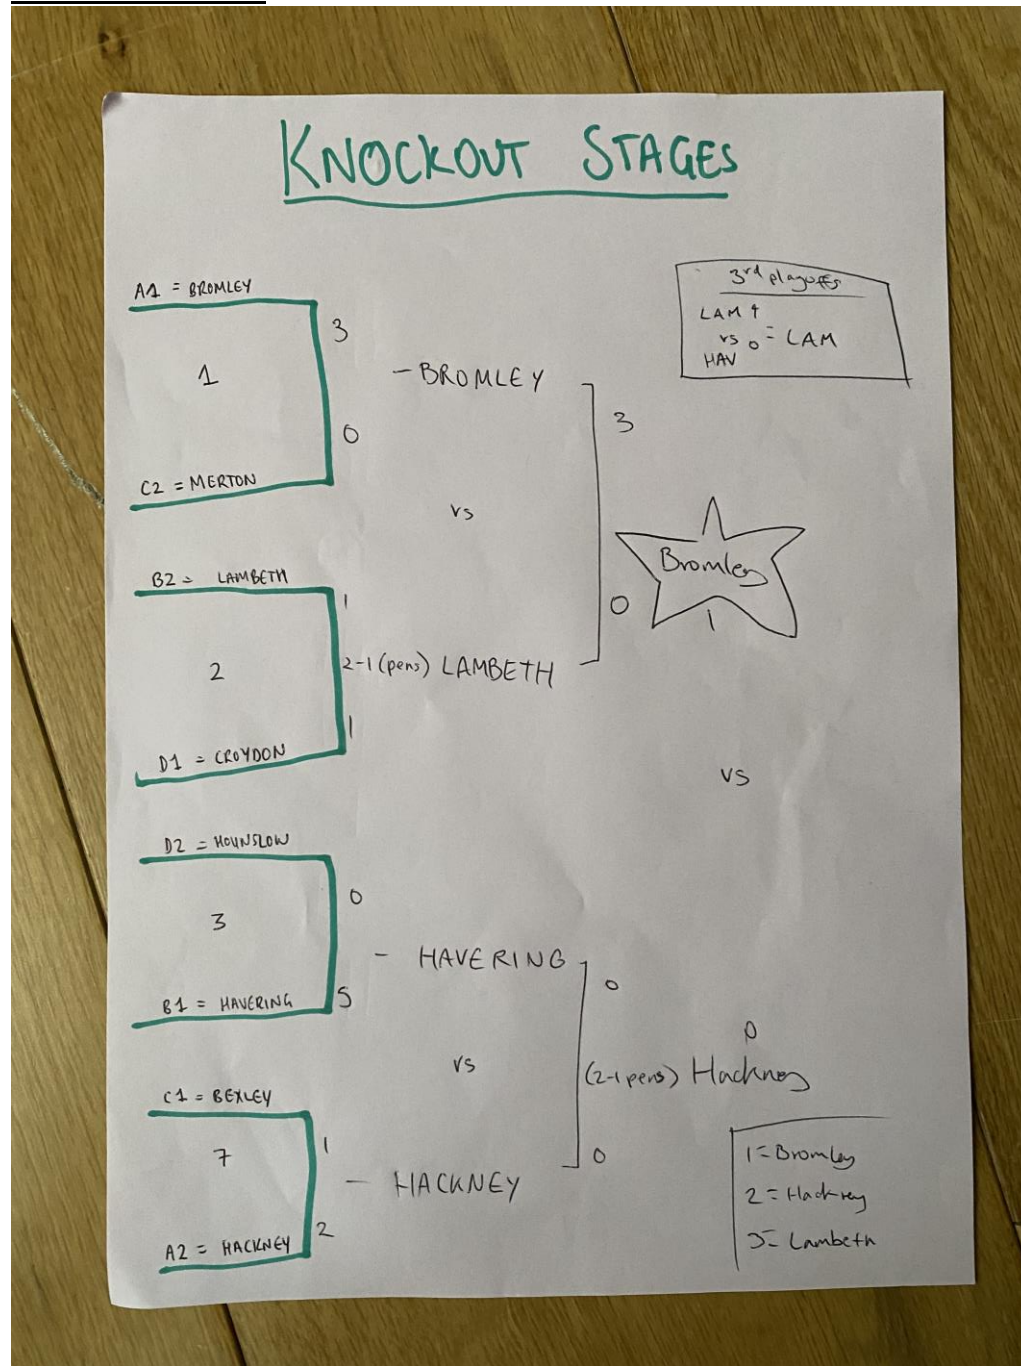 KNOCKOUT STAGES
3rd playoffs
LAM 4
vs 0 = LAM
HAV
A1 = BROMLEY
3
1
- BROMLEY
0
3
C2 = MERTON
vs
Bromley
1
B2 = LAMBETH
1
0
2
2-1 (pens) LAMBETH
1
D1 = CROYDON
vs
D2 = HOUNSLOW
0
3
- HAVERING
0
B1 = HAVERING
5
vs
0
(2-1 pens) Hackney
C1 = BEXLEY
1
7
- HACKNEY
0
2
A2 = HACKNEY
1 = Bromley
2 = Hackney
3 = Lambeth